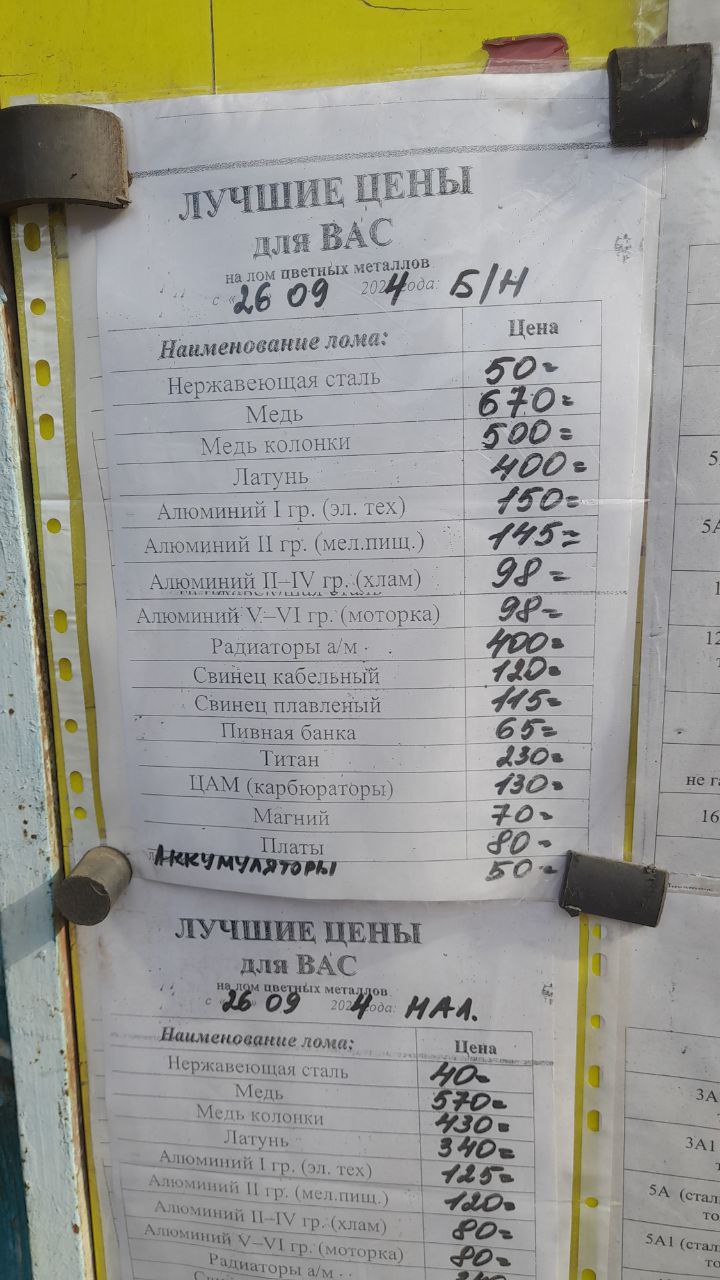 ЛУЧШИЕ ЦЕНЫ
для ВАС
на лом цветных металлов
с «26 09 2024 года: Б/Н
Наименование лома: Цена
Нержавеющая сталь 50=
Медь 670=
Медь колонки 500=
Латунь 400=
Алюминий I гр. (эл. тех) 150=
Алюминий II гр. (мел.пищ.) 145=
Алюминий II–IV гр. (хлам) 98=
Алюминий V–VI гр. (моторка) 98=
Радиаторы а/м 400=
Свинец кабельный 120=
Свинец плавленый 115=
Пивная банка 65=
Титан 230=
ЦАМ (карбюраторы) 130=
Магний 70=
Платы 80=
АККУМУЛЯТОРЫ 50=
ЛУЧШИЕ ЦЕНЫ
для ВАС
на лом цветных металлов
с «26» 09 2024 года: НАЛ.
Наименование лома: Цена
Нержавеющая сталь 40=
Медь 570=
Медь колонки 430=
Латунь 340=
Алюминий I гр. (эл. тех) 125=
Алюминий II гр. (мел.пищ.) 120=
Алюминий II–IV гр. (хлам) 80=
Алюминий V–VI гр. (моторка) 80=
Радиаторы а/м
5А
12
не га
16
3А
3А1
5А (стал
то
5А1 (стал
то